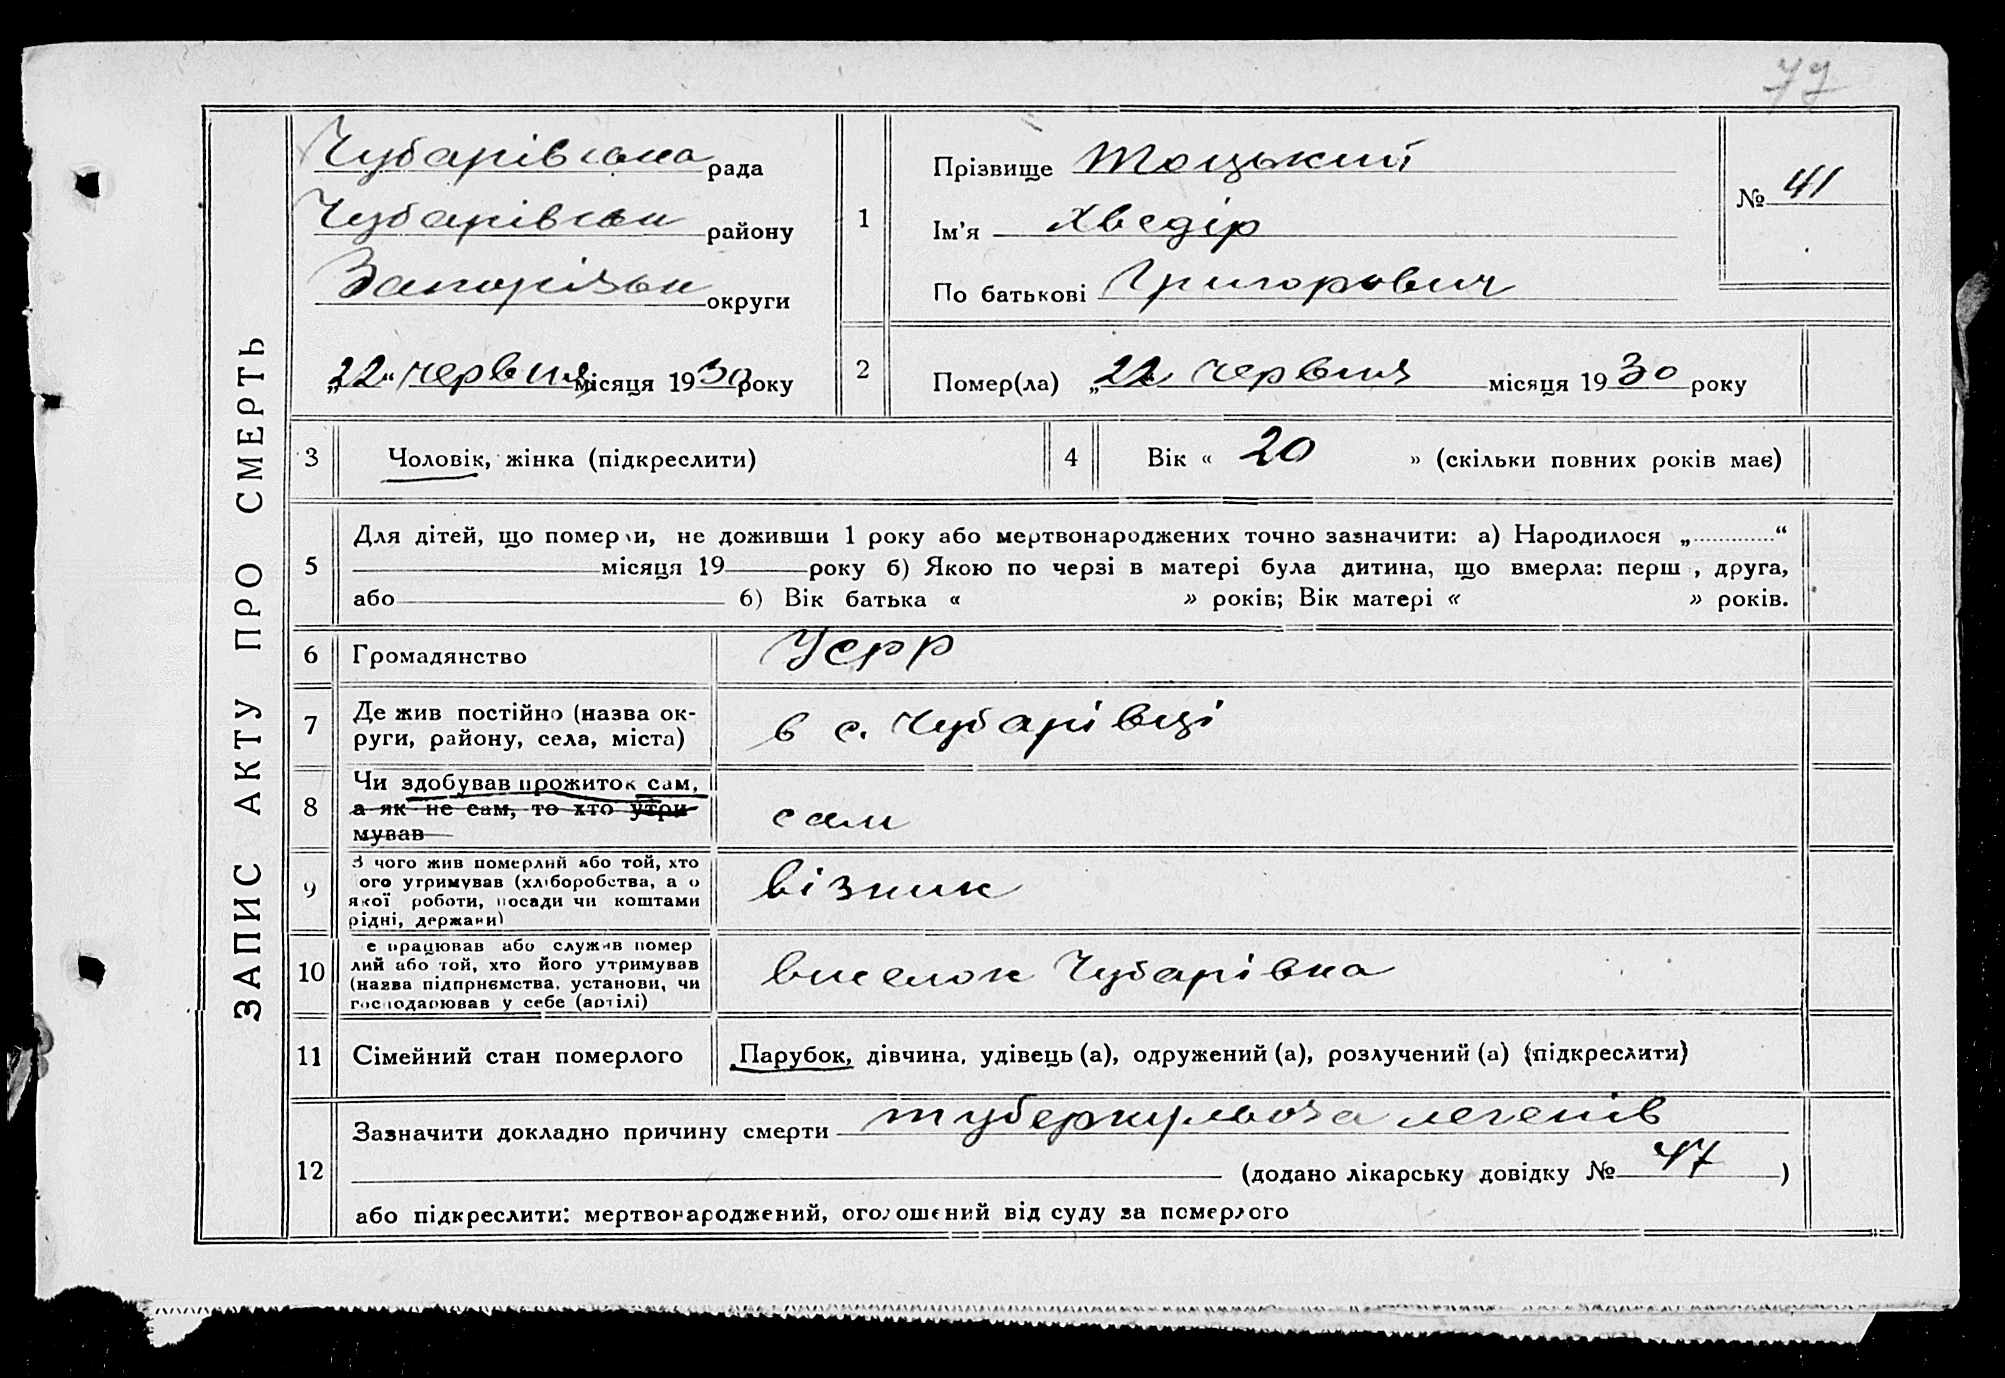 77
ЗАПИС АКТУ ПРО СМЕРТЬ
Чубарівська рада
Чубарівськ району
Запорізьк округи
„22“ червня місяця 1930 року
1
Прізвище Тоцький
Ім'я Хведір
По батькові Григорович
№ 41
2
Помер(ла) „22 червня місяця 1930 року
3
Чоловік, жінка (підкреслити)
4
Вік « 20 » (скільки повних років має)
5
Для дітей, що померли, не доживши 1 року або мертвонароджених точно зазначити: а) Народилося „ “
місяця 19 року б) Якою по черзі в матері була дитина, що вмерла: перш , друга,
або б) Вік батька « » років; Вік матері « » років.
6
Громадянство УСРР
7
Де жив постійно (назва ок-
руги, району, села, міста)
в с. Чубарівці
8
Чи здобував прожиток сам,
а як не сам, то хто утри
мував
сам
9
З чого жив померлий або той, хто
ого утримував (хліборобства, а о
якої роботи, посади чи коштами
рідні, держави)
візник
10
е працював або служив помер
лий або той, хто його утримував
(назва підприємства, установи, чи
господарював у себе (артілі)
виселок Чубарівка
11
Сімейний стан померлого
Парубок, дівчина, удівець (а), одружений (а), розлучений (а) (підкреслити)
12
Зазначити докладно причину смерти туберкульоза легенів
(додано лікарську довідку № 47 )
або підкреслити: мертвонароджений, оголошений від суду за померлого